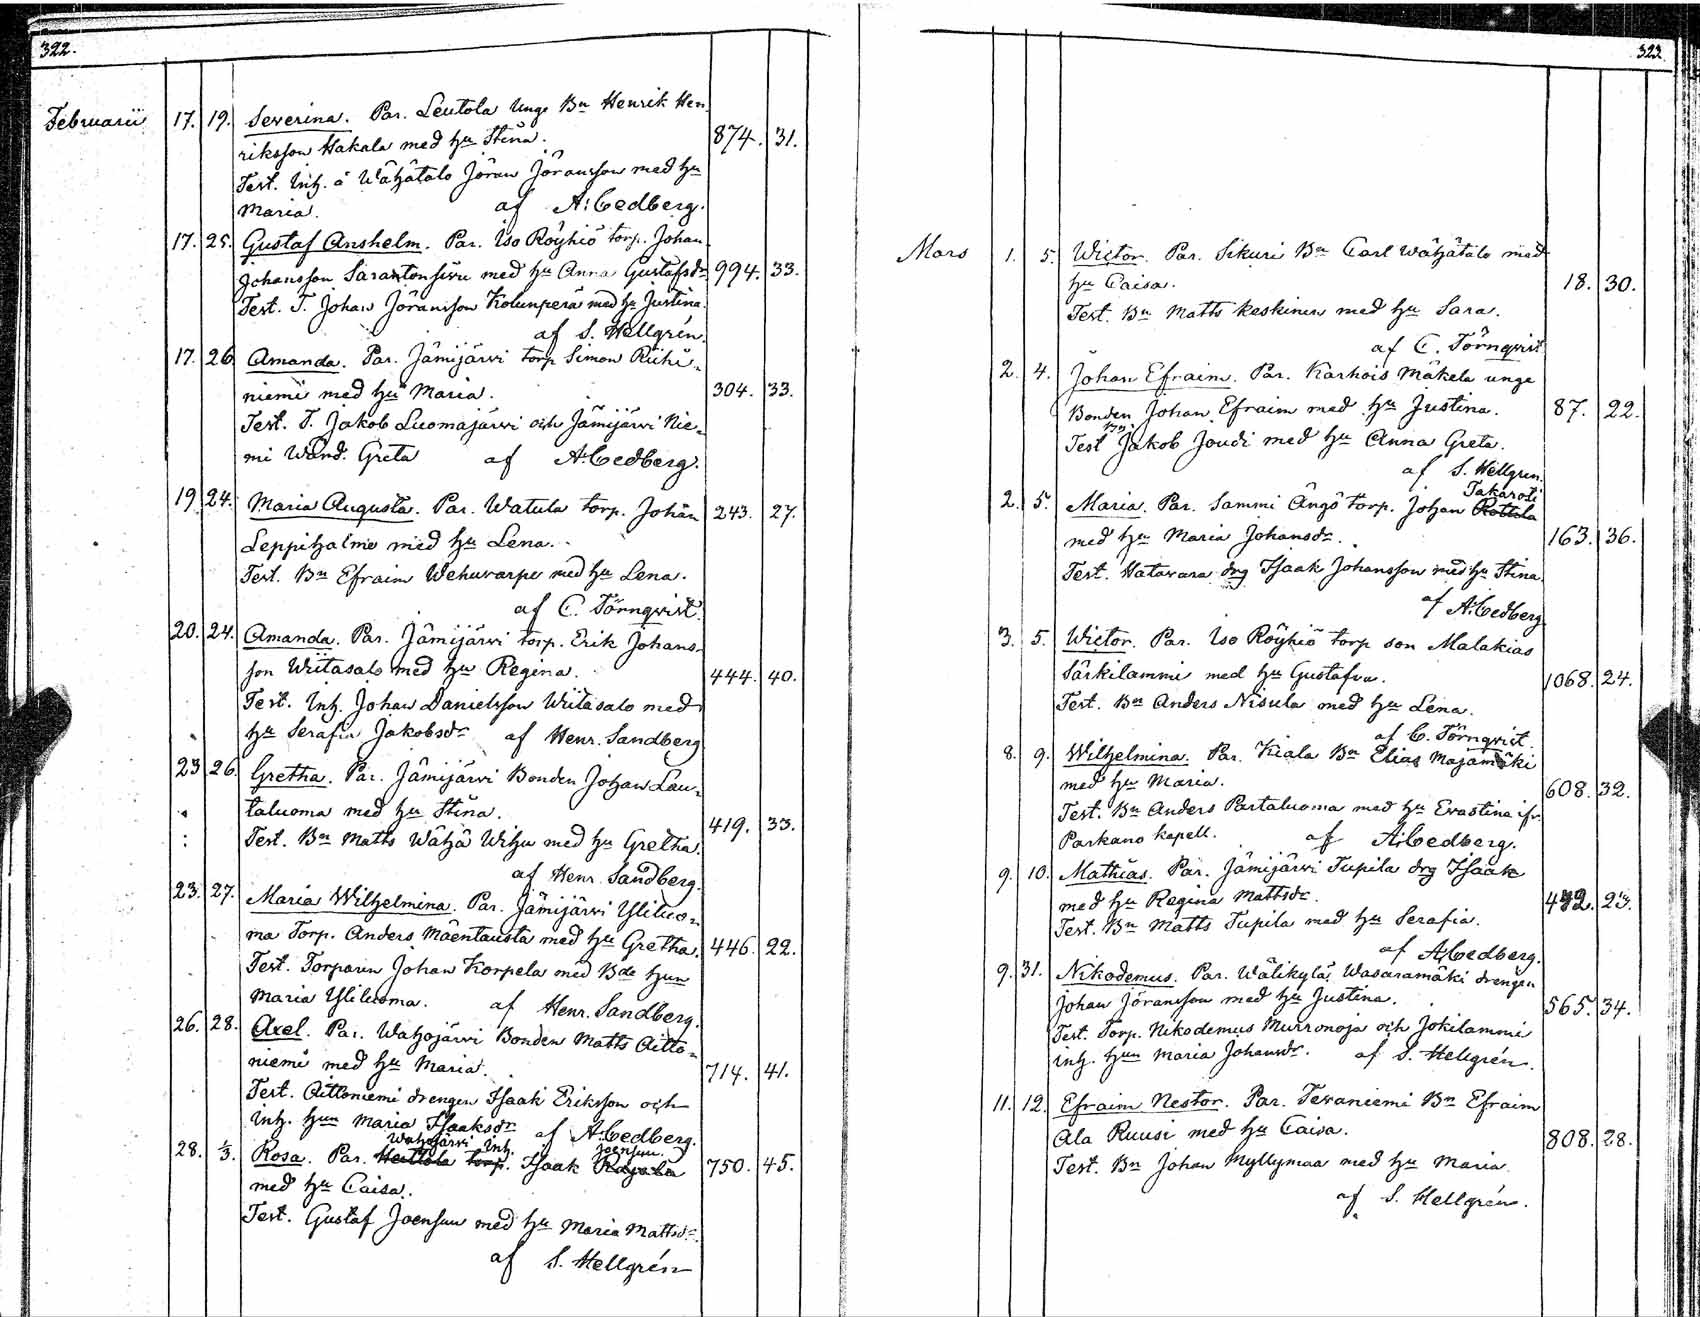 322.
Februarii 17. 19. Severina. Par. Leutola Unge Bn Henrik Hen-
riksson Hakala med hu Stina. 874. 31.
Test. Inh. å Wähätalo Jöran Jöransson med hu
Maria. af A. Cedberg.
17. 25. Gustaf Anshelm. Par. Iso Röyhiö torp. Johan
Johansson med hu Anna Gustafsdr 994. 33.
Test. T. Johan Jöransson Kolunperä med hu Justina.
af S. Hellgrén.
17. 26 Amanda. Par. Jämijärvi torp Simon Riihi-
niemi med hu Maria. 304. 33.
Test. T. Jakob Luomajärvi och Jämijärvi Nie-
mi Wärd. Greta af A. Cedberg.
19 24. Maria Augusta. Par. Watula torp. Johan 243. 27.
Leppihalme med hu Lena.
Test. Bn Efraim Wehuvarpe med hu Lena.
af C. Törnqvist.
20. 24. Amanda. Par. Jämijärvi torp. Erik Johans-
son Wiitasalo med hu Regina. 444. 40.
Test. Inh. Johan Danielsson Wiitasalo med
hu Serafia Jakobsdr af Henr. Sandberg
23 26. Gretha. Par. Jämijärvi Bonden Johan Lau-
taluoma med hu Stina. 419. 33.
Test. Bn Matts Wähä Wihu med hu Gretha.
af Henr. Sandberg.
23. 27. Maria Wilhelmina. Par. Jämijärvi Yliluo-
ma Torp. Anders Mäentausta med hu Gretha. 446. 22.
Test. Torparen Johan Korpela med Bde hun
Maria Yliluoma. af Henr. Sandberg.
26. 28. Axel. Par. Wahojärvi Bonden Matts Aitto-
niemi med hu Maria. 714. 41.
Test. Aittoniemi drengen Isaak Eriksson och
inh. hun Maria Isaaksdr af A. Cedberg.
Wahojärvi Inh. Joensuu.
28. 1/3. Rosa. Par. Heittola torp. Isaak Rajala 750. 45.
med hu Caisa.
Test. Gustaf Joensuu med hu Maria Mattsdr.
af S. Hellgrén
323
Mars 1. 5. Wictor. Par. Sikuri Bn Carl Wähätalo med
hu Caisa. 18. 30.
Test. Bn Matts Keskinen med hu Sara.
af C. Törnqvist
2. 4. Johan Efraim. Par. Karhois Mäkela unge
Bonden Johan Efraim med hu Justina. 87. 22.
Test Bn Jakob Joudi med hu Anna Greta.
af S. Hellgren.
Takaroti
2. 5. Maria. Par. Sammi Ängö torp. Johan Rottola
med hu Maria Johansdr. 163. 36.
Test. Hatavara drg Isaak Johansson med hu Stina.
af A. Cedberg
3. 5. Wictor. Par. Iso Röyhiö torp son Malakias
Särkilammi med hu Gustafva. 1068. 24.
Test. Bn Anders Nisula med hu Lena.
af C. Törnqvist.
8. 9. Wilhelmina. Par. Kiala Bn Elias Majamäki
med hu Maria. 608. 32.
Test. Bn Anders Partaluoma med hu Evastina ifr.
Parkano kapell. af A. Cedberg.
9. 10. Mathias. Par. Jämijärvi Tupila drg Isaak
med hu Regina Mattsdr. 23.
Test. Bn Matts Tupila med hu Serafia.
af A. Cedberg.
9. 31. Nikodemus. Par. Wälikylä, Wasaramäki drengen
Johan Jöransson med hu Justina. 565. 34.
Test. Torp. Nikodemus Murronoja och Jokilammi
inh. hun Maria Johansdr. af S. Hellgrén.
11. 12. Efraim Nestor. Par. Tevaniemi Bn Efraim
Ala Ruusi med hu Caisa. 808. 28.
Test. Bn Johan Myllymaa med hu Maria.
af S. Hellgrén.